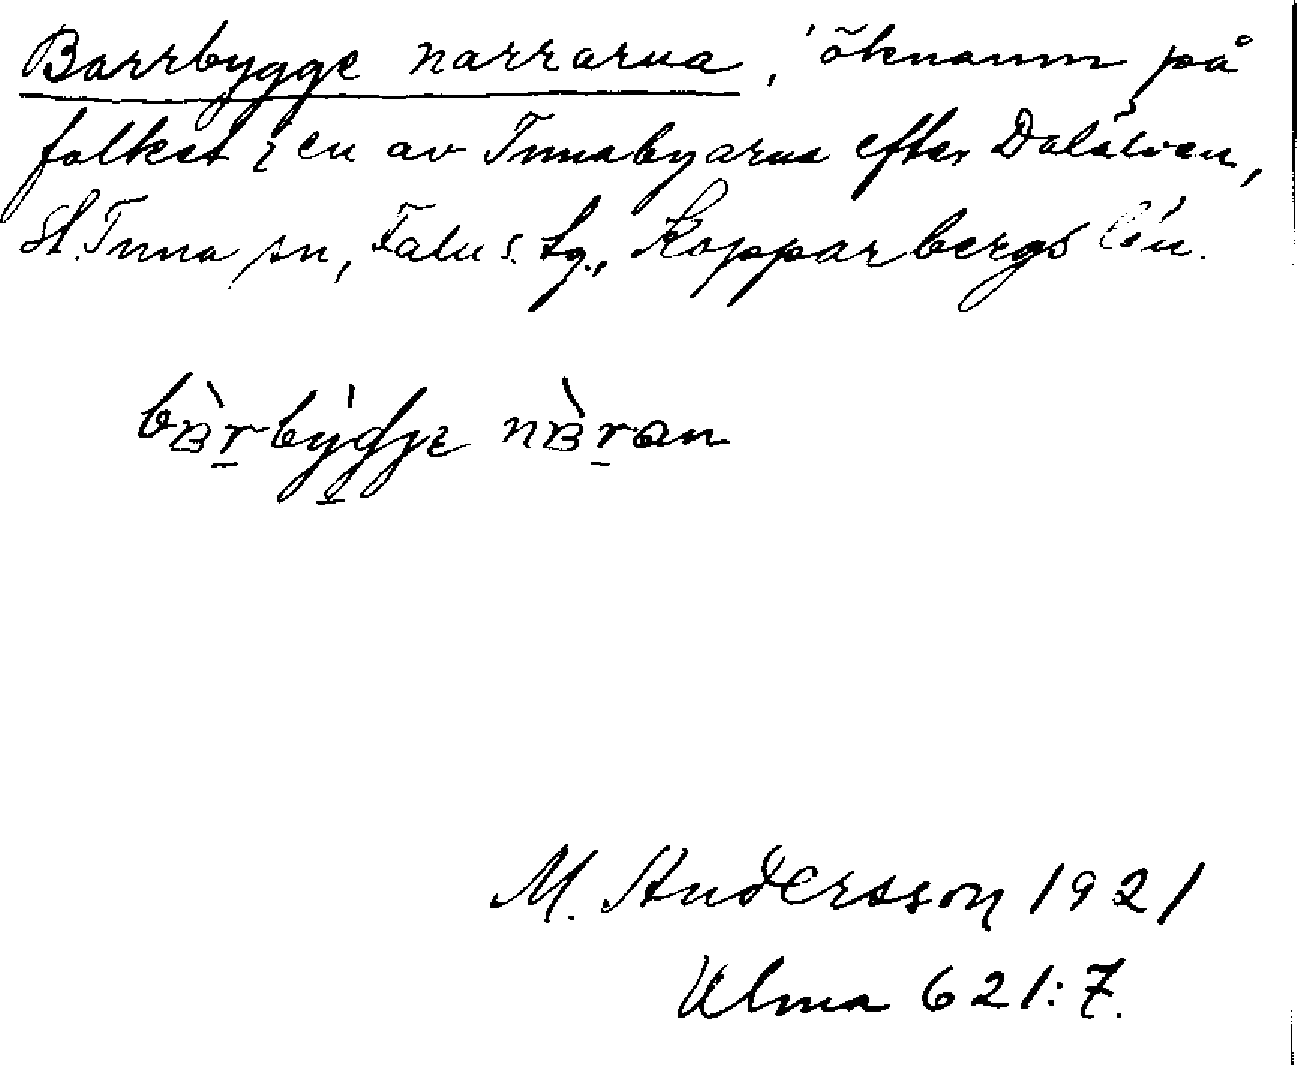 Barrbygge narrarna, öknamn på
folket i en av Tunabyarna efter Dalälven,
St. Tuna sn, Falu s. tg., Kopparbergs län.
M. Andersson 1921
Ulma 621:7.